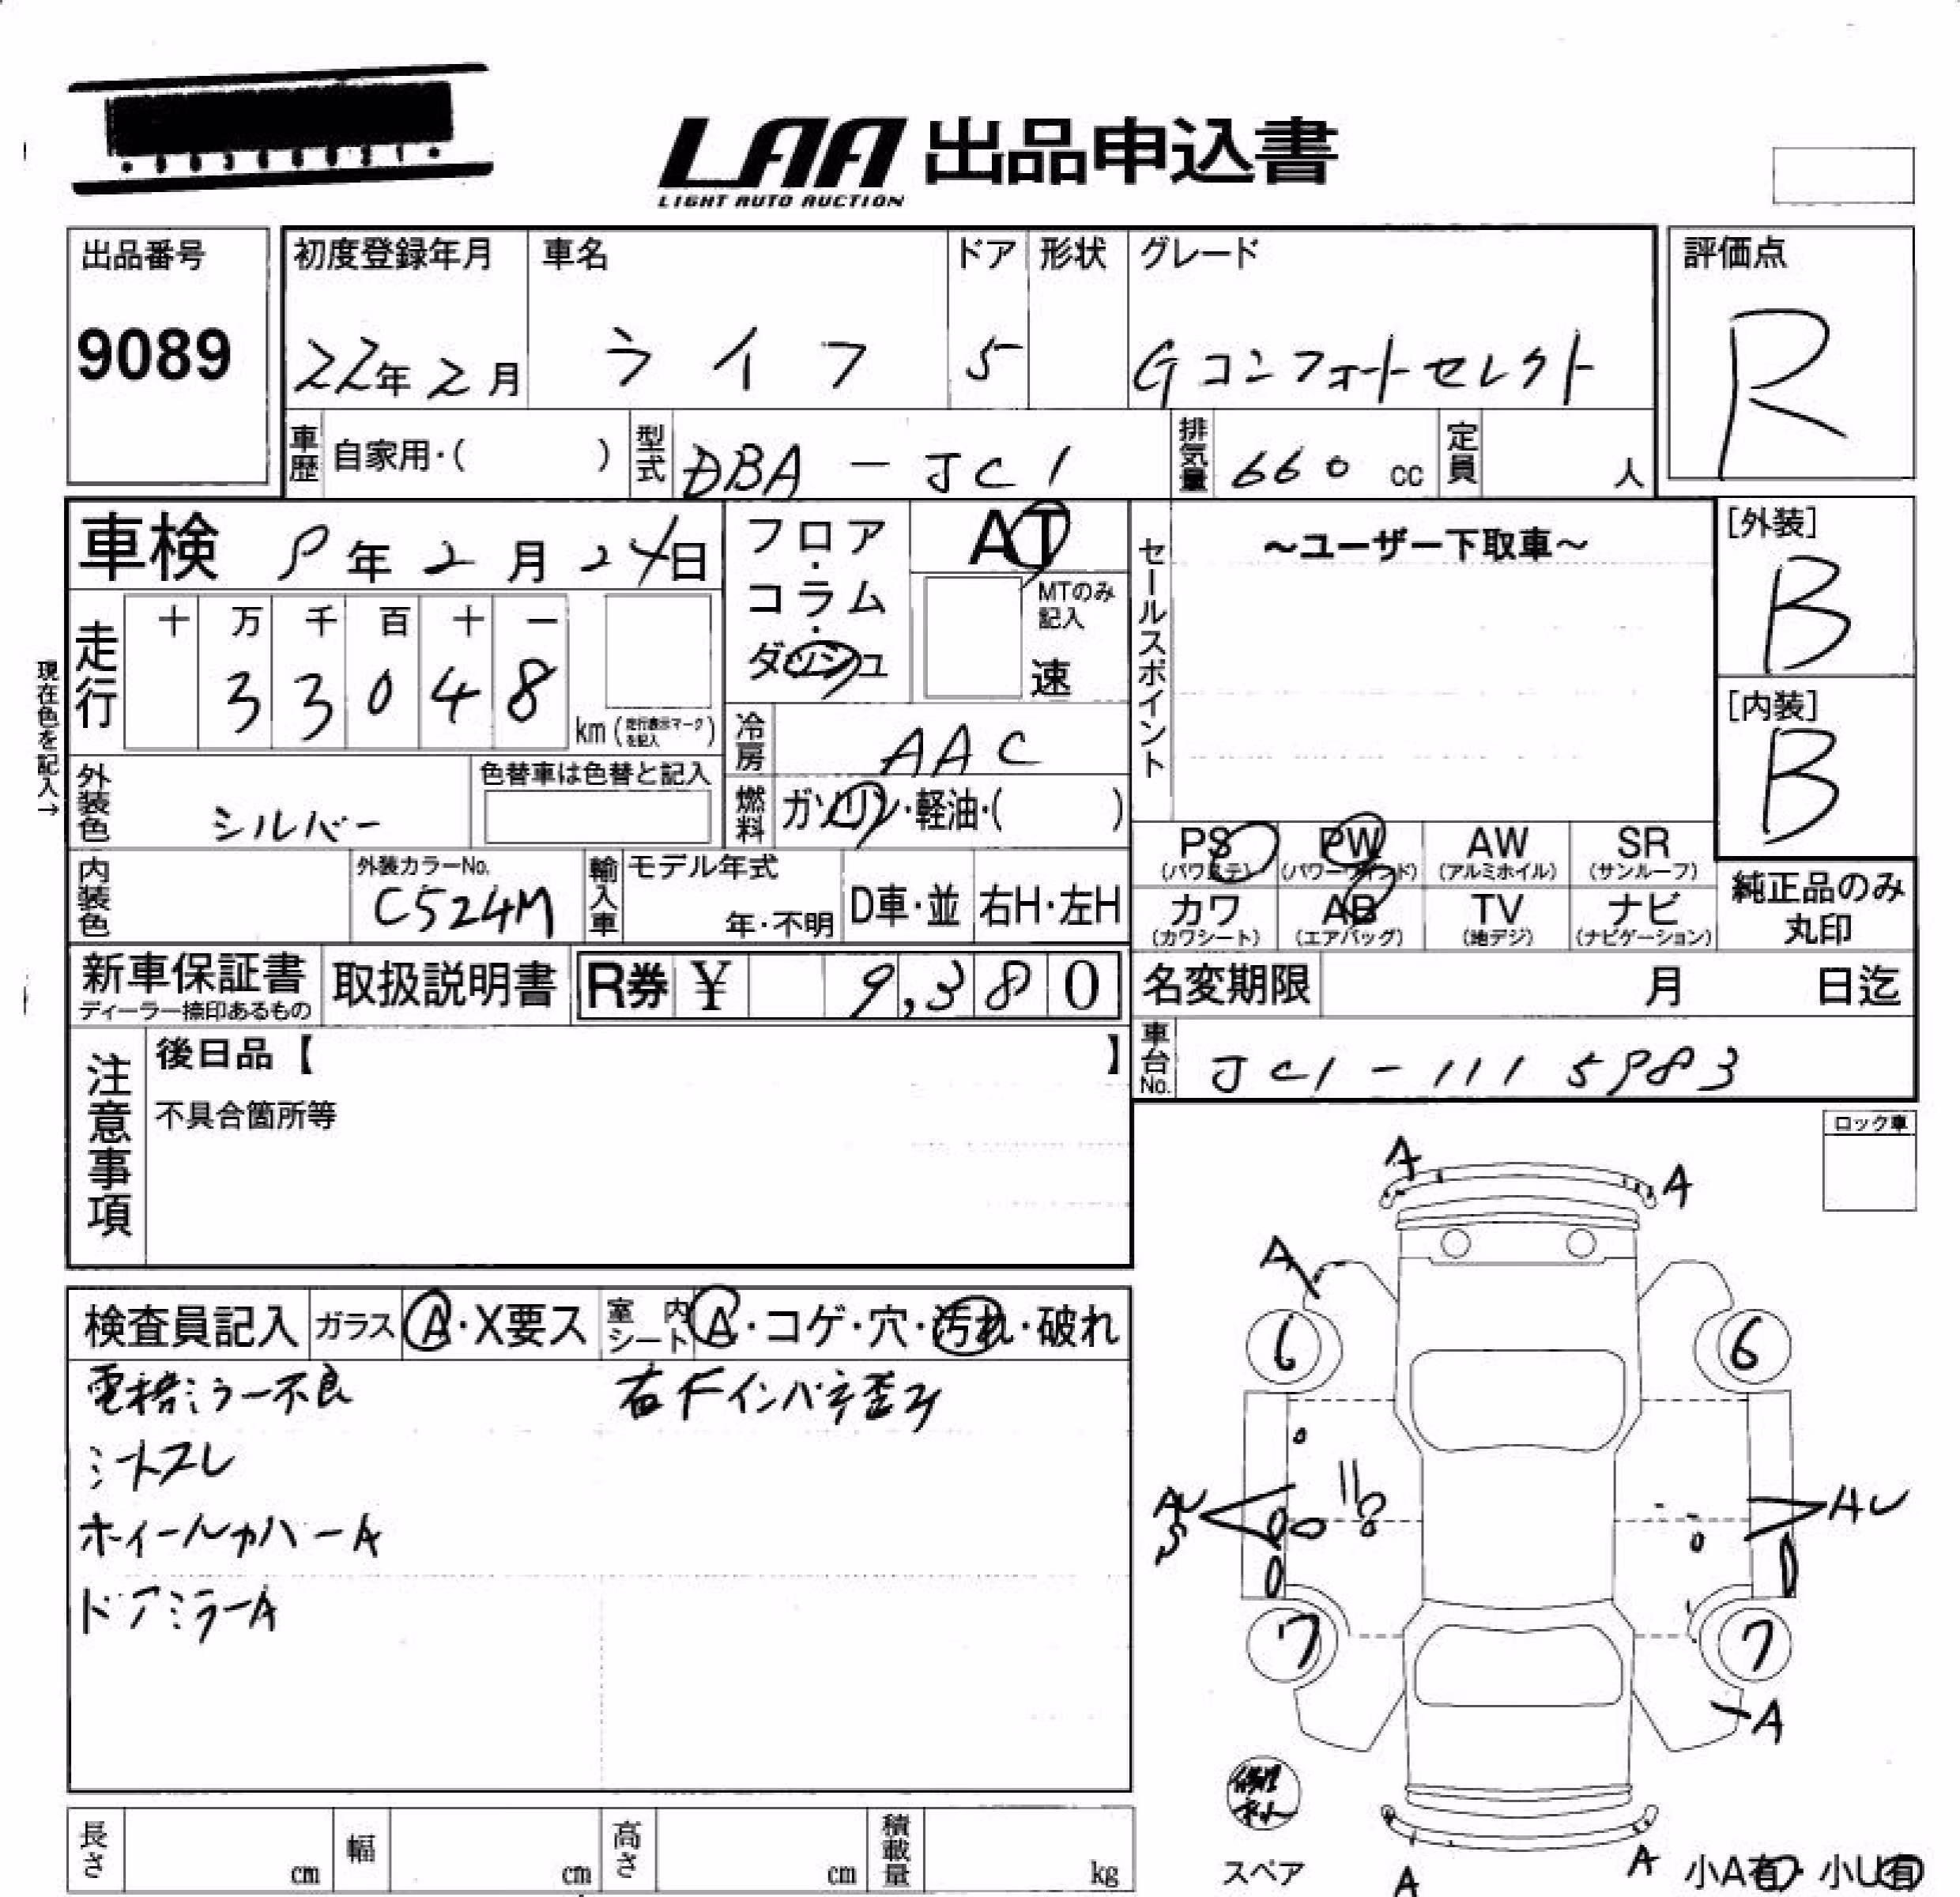 LAA 出品申込書
LIGHT AUTO AUCTION
出品番号
9089
初度登録年月
22年2月
車名
ライフ
ドア
5
形状
グレード
Gコンフォートセレクト
評価点
R
車歴 自家用・( )
型式 DBA-JC1
排気量 660 cc
定員 人
車検 9年2月24日
走行
十 万 千 百 十 一
3 3 0 4 8
km (走行表示マークを記入)
現在色を記入→
フロア・コラム・ダッシュ
AT
MTのみ記入
速
冷房 AAC
燃料 ガソリン・軽油・( )
セールスポイント
~ユーザー下取車~
[外装]
B
[内装]
B
外装色 シルバー
色替車は色替と記入
内装色
外装カラーNo.
C524M
輸入車
モデル年式
年・不明
D車・並
右H・左H
PS
(パワステ)
PW
(パワーウインド)
AW
(アルミホイル)
SR
(サンルーフ)
カワ
(カワシート)
AB
(エアバッグ)
TV
(地デジ)
ナビ
(ナビゲーション)
純正品のみ
丸印
新車保証書
ディーラー捺印あるもの
取扱説明書
R券 ¥ 9,380
名変期限 月 日迄
車台No. JC1-1115983
注意事項
後日品【 】
不具合箇所等
ロック車
検査員記入
ガラス A・X要ス
室内シート A・コゲ・穴・汚れ・破れ
電格ミラー不良
右Fインパネ歪み
シートスレ
ホイールカバーA
ドアミラーA
A
A
A
6
6
AU
S
AU
7
7
A
スペア
A
A
小A有・小U有
長さ cm
幅 cm
高さ cm
積載量 kg